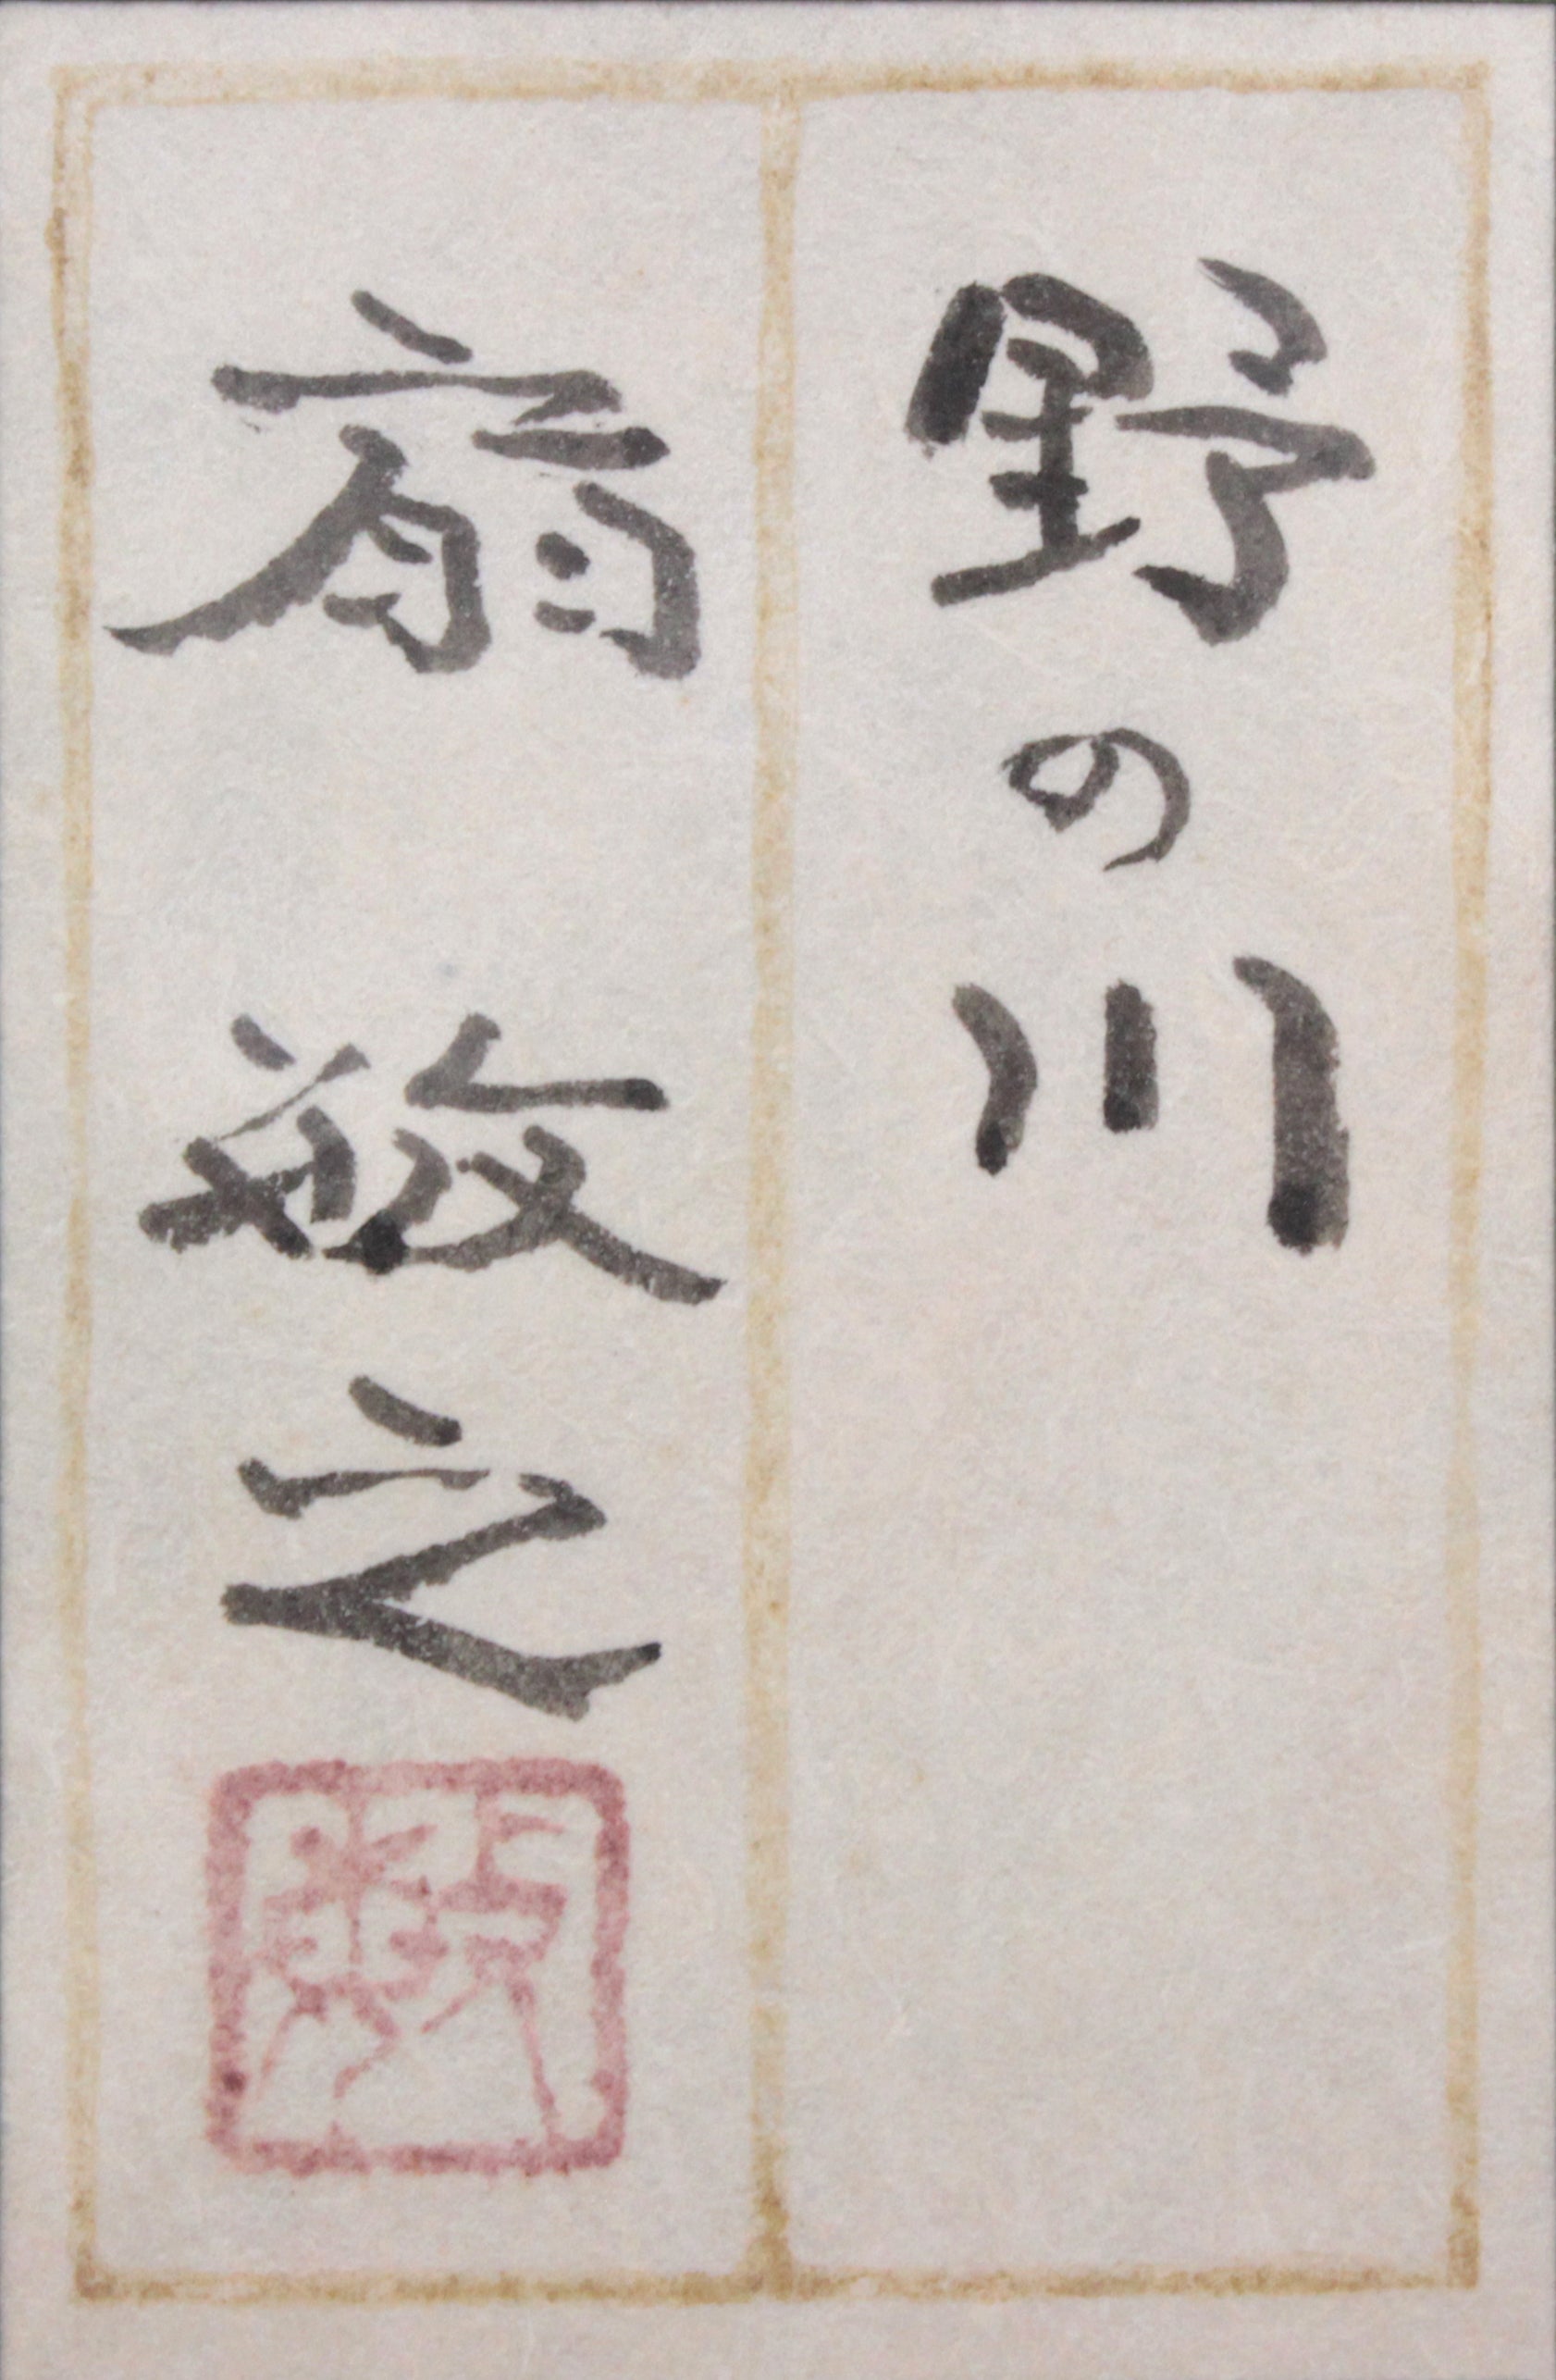 野の川
扇 敏之